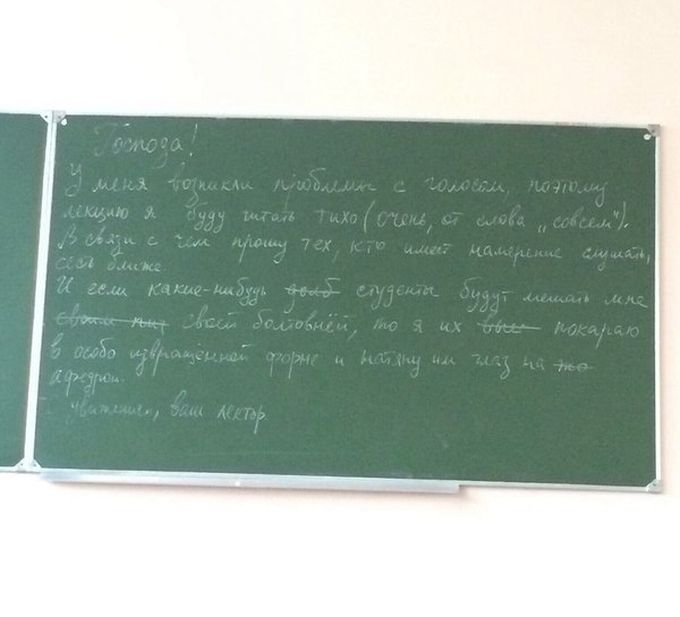 Господа!
У меня возникли проблемы с голосом, поэтому
лекцию я буду читать тихо (очень, от слова „совсем").
В связи с чем прошу тех, кто имеет намерение слушать,
сесть ближе.
И если какие-нибудь долб студенты будут мешать мне
своим своей болтовнёй, то я их покараю
в особо извращённой форме и натяну им глаз на жо
афедрон.
С уважением, ваш лектор